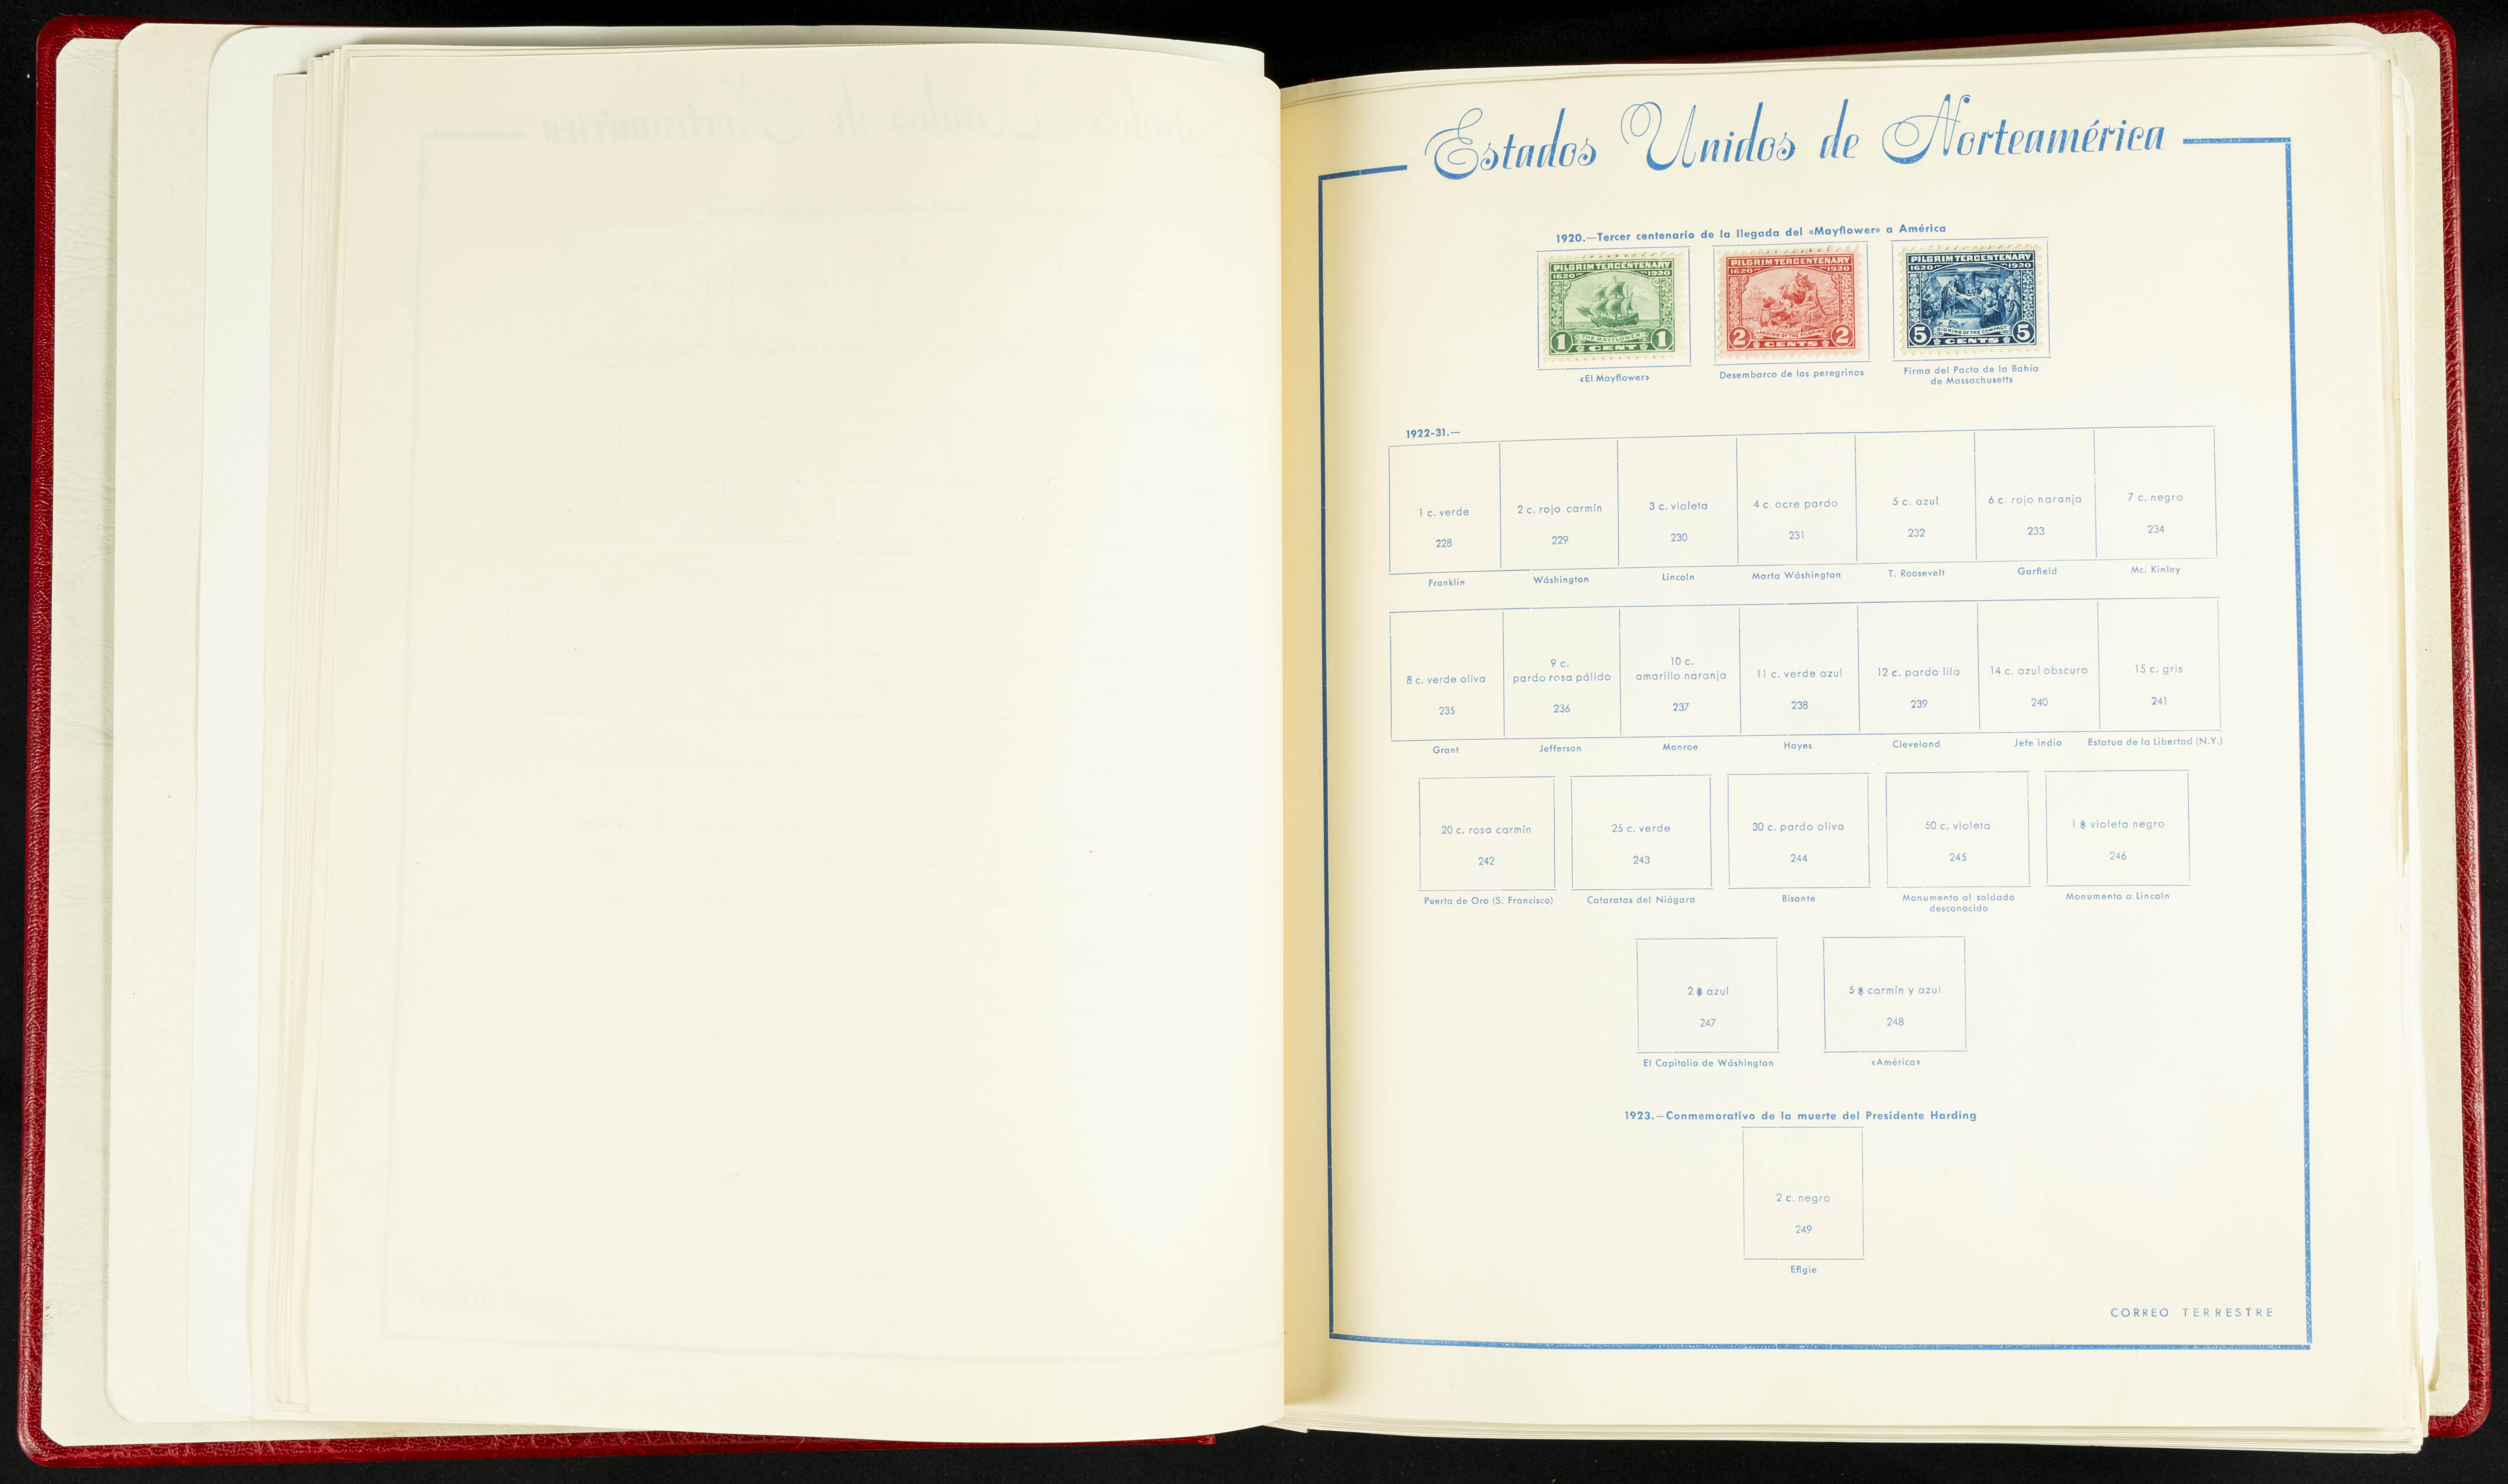 Estados Unidos de Norteamérica
1920.—Tercer centenario de la llegada del «Mayflower» a América
PILGRIM TERCENTENARY
1620 1920
THE MAYFLOWER
1 CENT 1
PILGRIM TERCENTENARY
1620 1920
LANDING OF THE PILGRIMS
2 CENTS 2
PILGRIM TERCENTENARY
1620 1920
SIGNING OF THE COMPACT
5 CENTS 5
«El Mayflower»
Desembarco de los peregrinos
Firma del Pacto de la Bahía
de Massachusetts
1922-31.—
1 c. verde
228
2 c. rojo carmín
229
3 c. violeta
230
4 c. ocre pardo
231
5 c. azul
232
6 c. rojo naranja
233
7 c. negro
234
Franklin
Wáshington
Lincoln
Marta Wáshington
T. Roosevelt
Garfield
Mc. Kinley
8 c. verde oliva
235
9 c.
pardo rosa pálido
236
10 c.
amarillo naranja
237
11 c. verde azul
238
12 c. pardo lila
239
14 c. azul obscuro
240
15 c. gris
241
Grant
Jefferson
Monroe
Hayes
Cleveland
Jefe indio
Estatua de la Libertad (N.Y.)
20 c. rosa carmín
242
25 c. verde
243
30 c. pardo oliva
244
50 c. violeta
245
1 $ violeta negro
246
Puerta de Oro (S. Francisco)
Cataratas del Niágara
Bisonte
Monumento al soldado
desconocido
Monumento a Lincoln
2 $ azul
247
5 $ carmín y azul
248
El Capitolio de Wáshington
«América»
1923.—Conmemorativo de la muerte del Presidente Harding
2 c. negro
249
Efigie
CORREO TERRESTRE